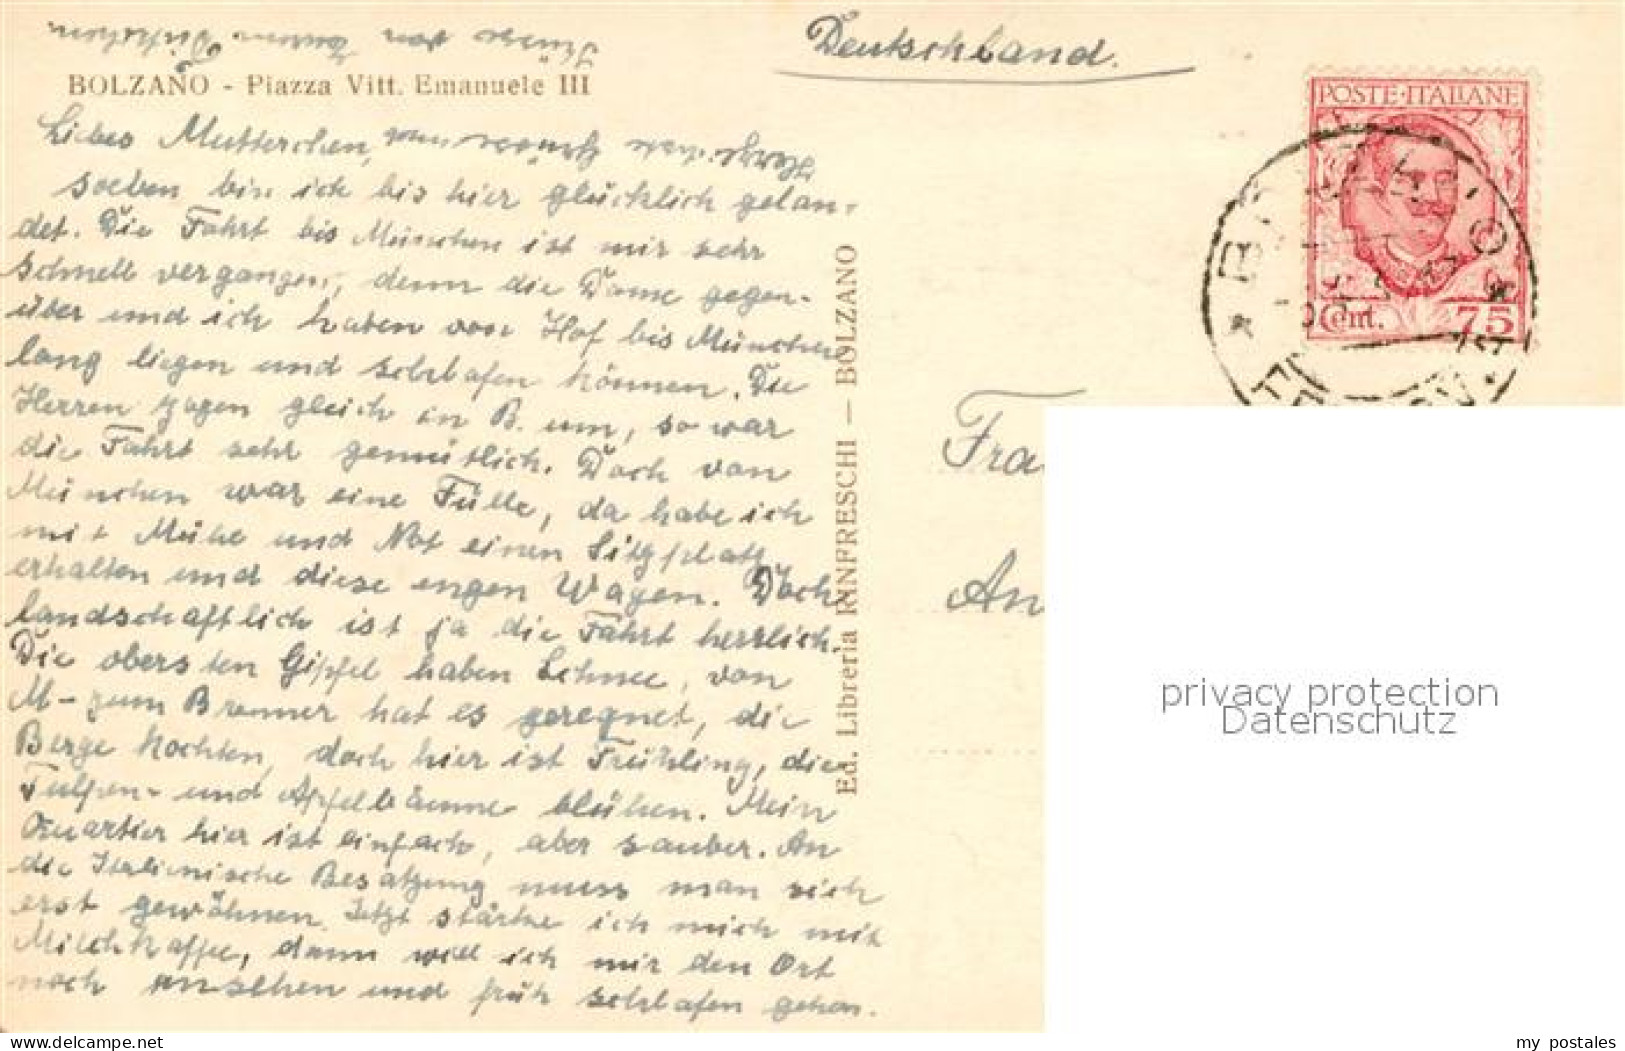 Deutschland.
BOLZANO - Piazza Vitt. Emanuele III
POSTE·ITALIANE
Cent. 75
Liebes Mutterchen,
soeben bin ich bis hier glücklich gelan-
det. Die Fahrt bis München ist mir sehr
schnell vergangen, denn die Dame gegen-
über und ich haben von Hof bis München
lang liegen und schlafen können. Die
Herren zogen gleich in B. um, so war
die Fahrt sehr gemütlich. Doch von
München war eine Fülle, da habe ich
mit Mühe und Not einen Sitzplatz
erhalten und diese engen Wagen. Doch
landschaftlich ist ja die Fahrt herrlich.
Die obersten Gipfel haben Schnee, von
M- zum Brenner hat es geregnet, die
Berge kochten, doch hier ist Frühling, die
Tulpen- und Apfelbäume blühen. Mein
Quartier hier ist einfach, aber sauber. An
die Italienische Besatzung muss man sich
erst gewöhnen. Jetzt stärke ich mich mit
Milchkaffee, dann will ich mir den Ort
noch ansehen und früh schlafen gehen.
Herzlichst
Ed. Libreria RINFRESCHI — BOLZANO
Fra
An
privacy protection
Datenschutz
www.delcampe.net
my_postales